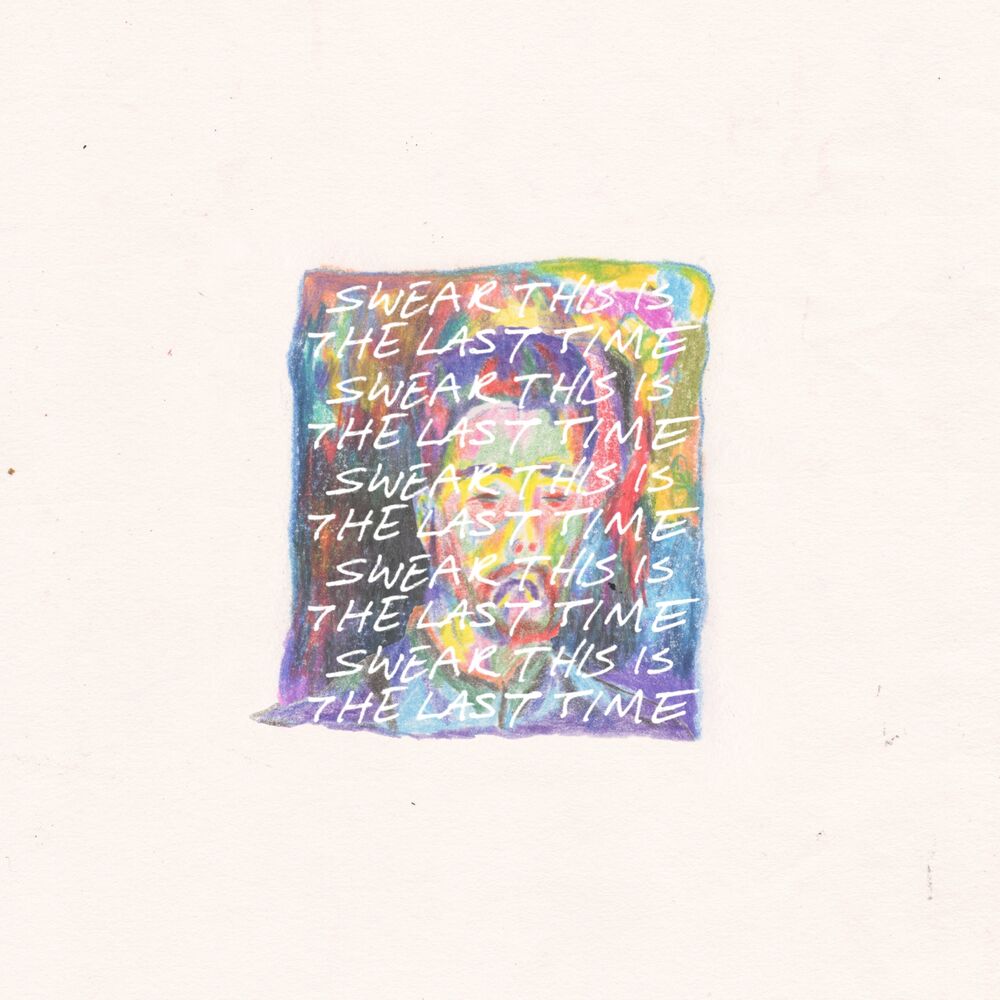 SWEAR THIS IS
THE LAST TIME
SWEAR THIS IS
THE LAST TIME
SWEAR THIS IS
THE LAST TIME
SWEAR THIS IS
THE LAST TIME
SWEAR THIS IS
THE LAST TIME